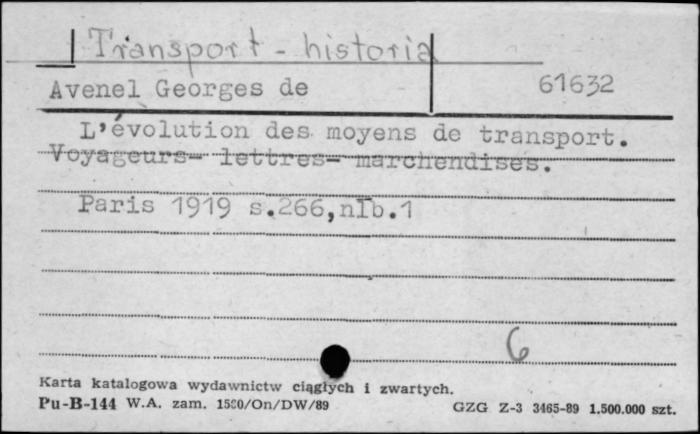 Transport - historia
Avenel Georges de 61632
L'évolution des moyens de transport.
Voyageurs- lettres- marchendises.
Paris 1919 s.266,nlb.1
6
Karta katalogowa wydawnictw ciągłych i zwartych.
Pu-B-144 W.A. zam. 1580/On/DW/89 GZG Z-3 3465-89 1.500.000 szt.